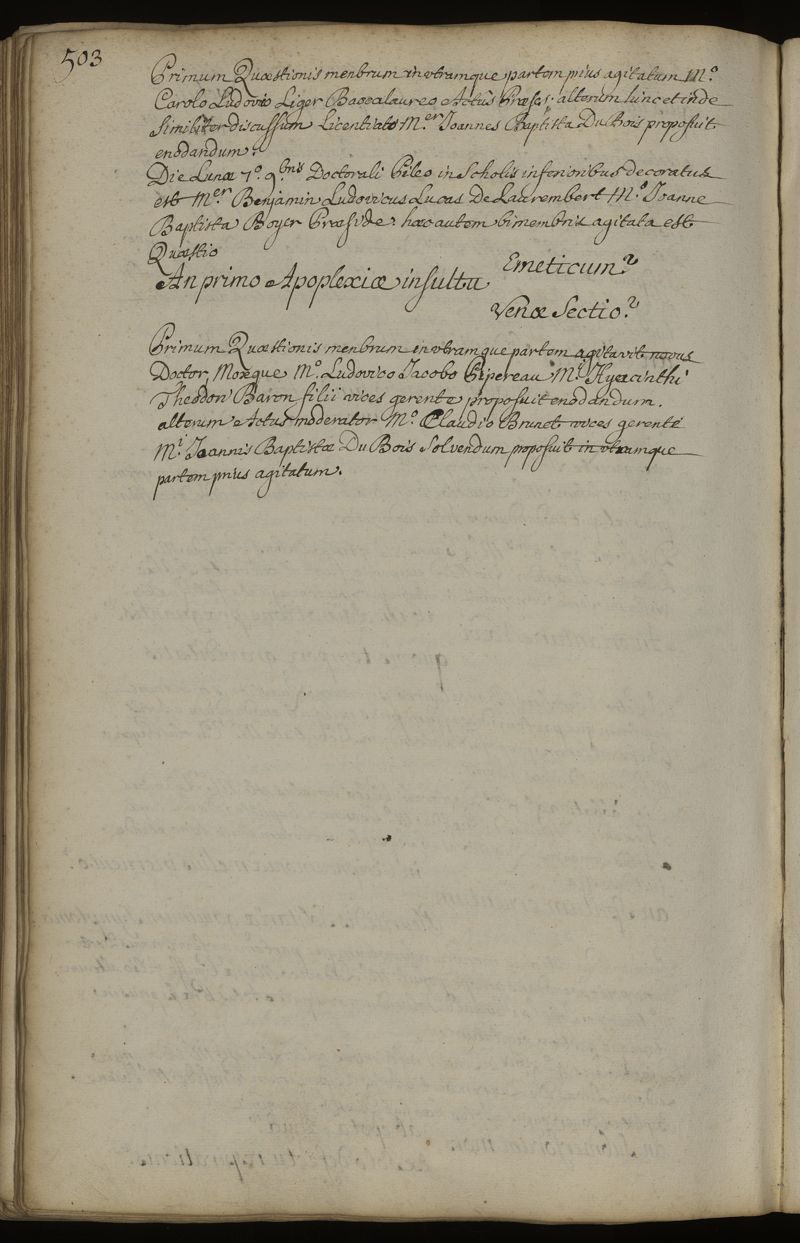 503
Primum Quæstionis menbrum in vtramque partem prius agitatum M.o
Carolo Ludovico Liger Baccalaureo Actûs Præses. alterum hinc et inde
Similiter discussum Licentiato M.er Joannes Baptista Du Bois proposuit
enodandum.
Die Lunæ 7.o 9.bris Doctorali Pileo in Scholis inferioribus decoratus
est M.er Benjamin Ludovicus Lucas De Laurembert M.o Joanne
Baptista Boyer Præside. hæc autem bimembris agitata est
Quæstio
An primo Apoplexiæ insultu Emeticum?
Venæ Sectio?
Primum Quæstionis menbrum in vtramque partem agitavit novus
Doctor, Moxque M.o Ludovico Jacobo Pipereau M.i Hyacinthi
Theodori Baron filii vices gerente proposuit enodandum.
alterum Actus moderator M.o Claudio Brunet vices gerente
M.i Joannis Baptistæ Du Bois Solvendum proposuit in vtramque
partem prius agitatum.